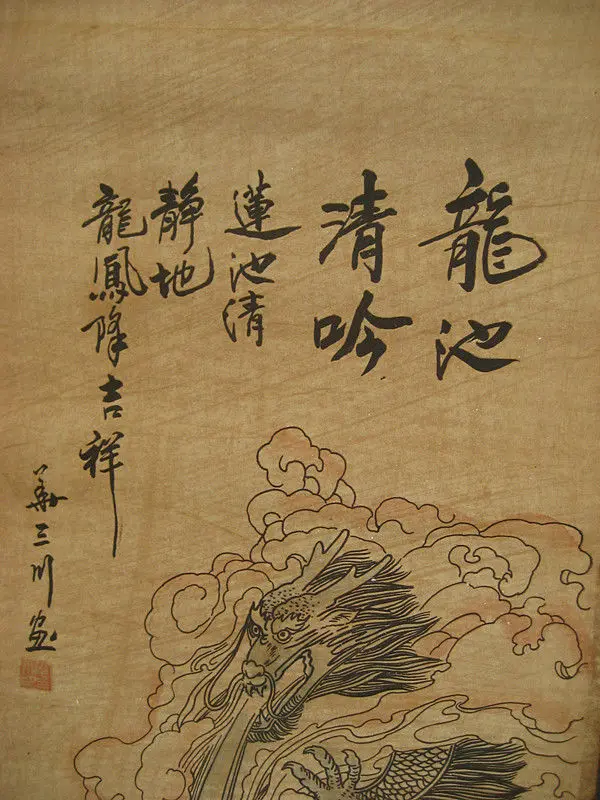 龍池
清吟
蓮池清
靜地
龍鳳降吉祥
華三川画